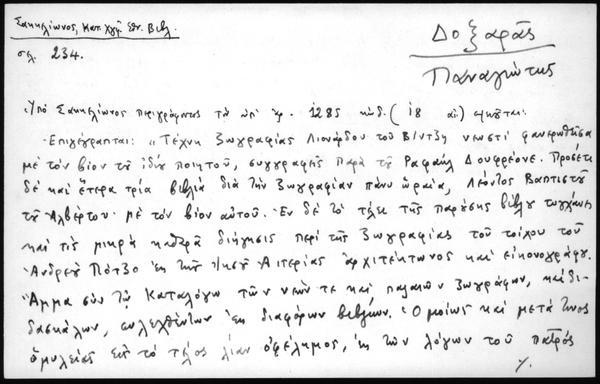 Σακκελίωνος, Κατ. Χγρ. Εθν. Βιβλ.
σελ. 234.
Δοξαρᾶς
Παναγιώτης
Ὑπὸ Σακκελίωνος περιγράφοντος τὸ ὑπ' ἀρ. 1285 κώδ. (18 αἰ)
Ἐπιγέγραπται: "Τέχνη Ζωγραφίας Λιονάρδου τοῦ Βίντζη νεωστὶ φανερωθεῖσα
μὲ τὸν βίον τοῦ ἰδίου ποιητοῦ, συγγραφῆς παρὰ τοῦ Ραφαὴλ Δουφρέσνε. Προσέτι
δὲ καὶ ἕτερα τρία βιβλία διὰ τὴν ζωγραφίαν πάνυ ὡραῖα, Λέοντος Βαπτιστοῦ
τοῦ Ἀλβέρτου μὲ τὸν βίον αὐτοῦ. Ἐν δὲ τῷ τέλει τῆς παρούσης βίβλου τυγχάνει
καί τις μικρὰ καθαρὰ διήγησις περὶ τῆς Ζωγραφίας τοῦ τοίχου τοῦ
Ἀνδρέου Πότζο ἐκ τῆς Ἀρχιτέκτωνος καὶ εἰκονογράφου.
Ἅμμα σὺν τῷ Καταλόγῳ τῶν νεῶν τε καὶ παλαιῶν ζωγράφων, καὶ δι-
δασκάλων, συλεχθέντων ἐκ διαφόρων βιβλίων. Ὁμοίως καὶ μετά τινος
ὁμιλείας εἰς τὸ τέλος λίαν ὀφέλημος, ἐκ τῶν λόγων τοῦ Πατρός